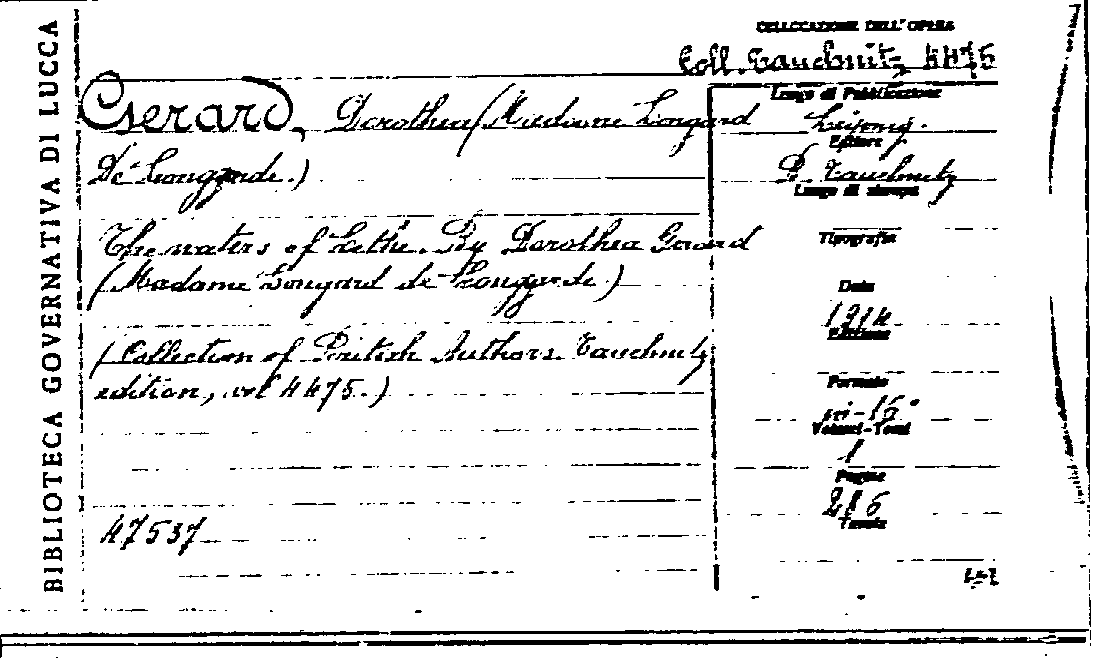 BIBLIOTECA GOVERNATIVA DI LUCCA
COLLOCAZIONE DELL'OPERA
Coll. Tauchnitz 4475
Gerard, Dorothea (Madame Longard
De Longgarde.)
The waters of Lethe. By Dorothea Gerard
(Madame Longard de Longgarde.)
(Collection of British Authors. Tauchnitz
edition, vol 4475.)
47537
Luogo di Pubblicazione
Leipzig.
Editore
B. Tauchnitz
Luogo di stampa
Tipografia
Data
1914
Edizione
Formato
in-16°
Volumi-Tomi
1
Pagine
286
Tavole